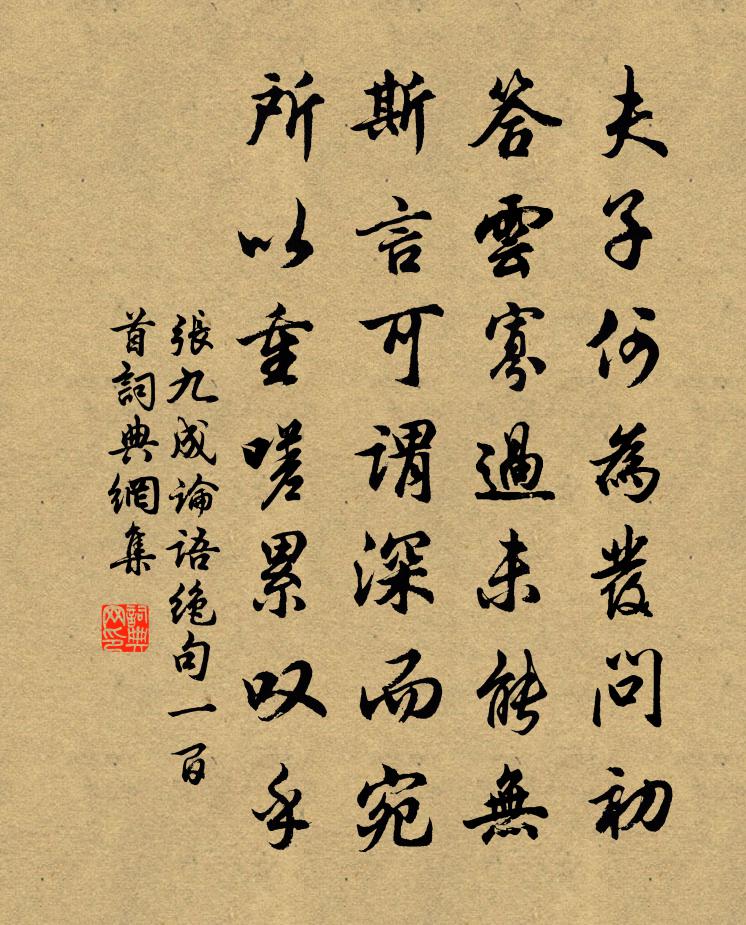 夫子何為發問初
答雲寡過未能無
斯言可謂深而宛
所以重嗟累叹乎
張九成论语绝句一百
首詞典網集
詞典
网印